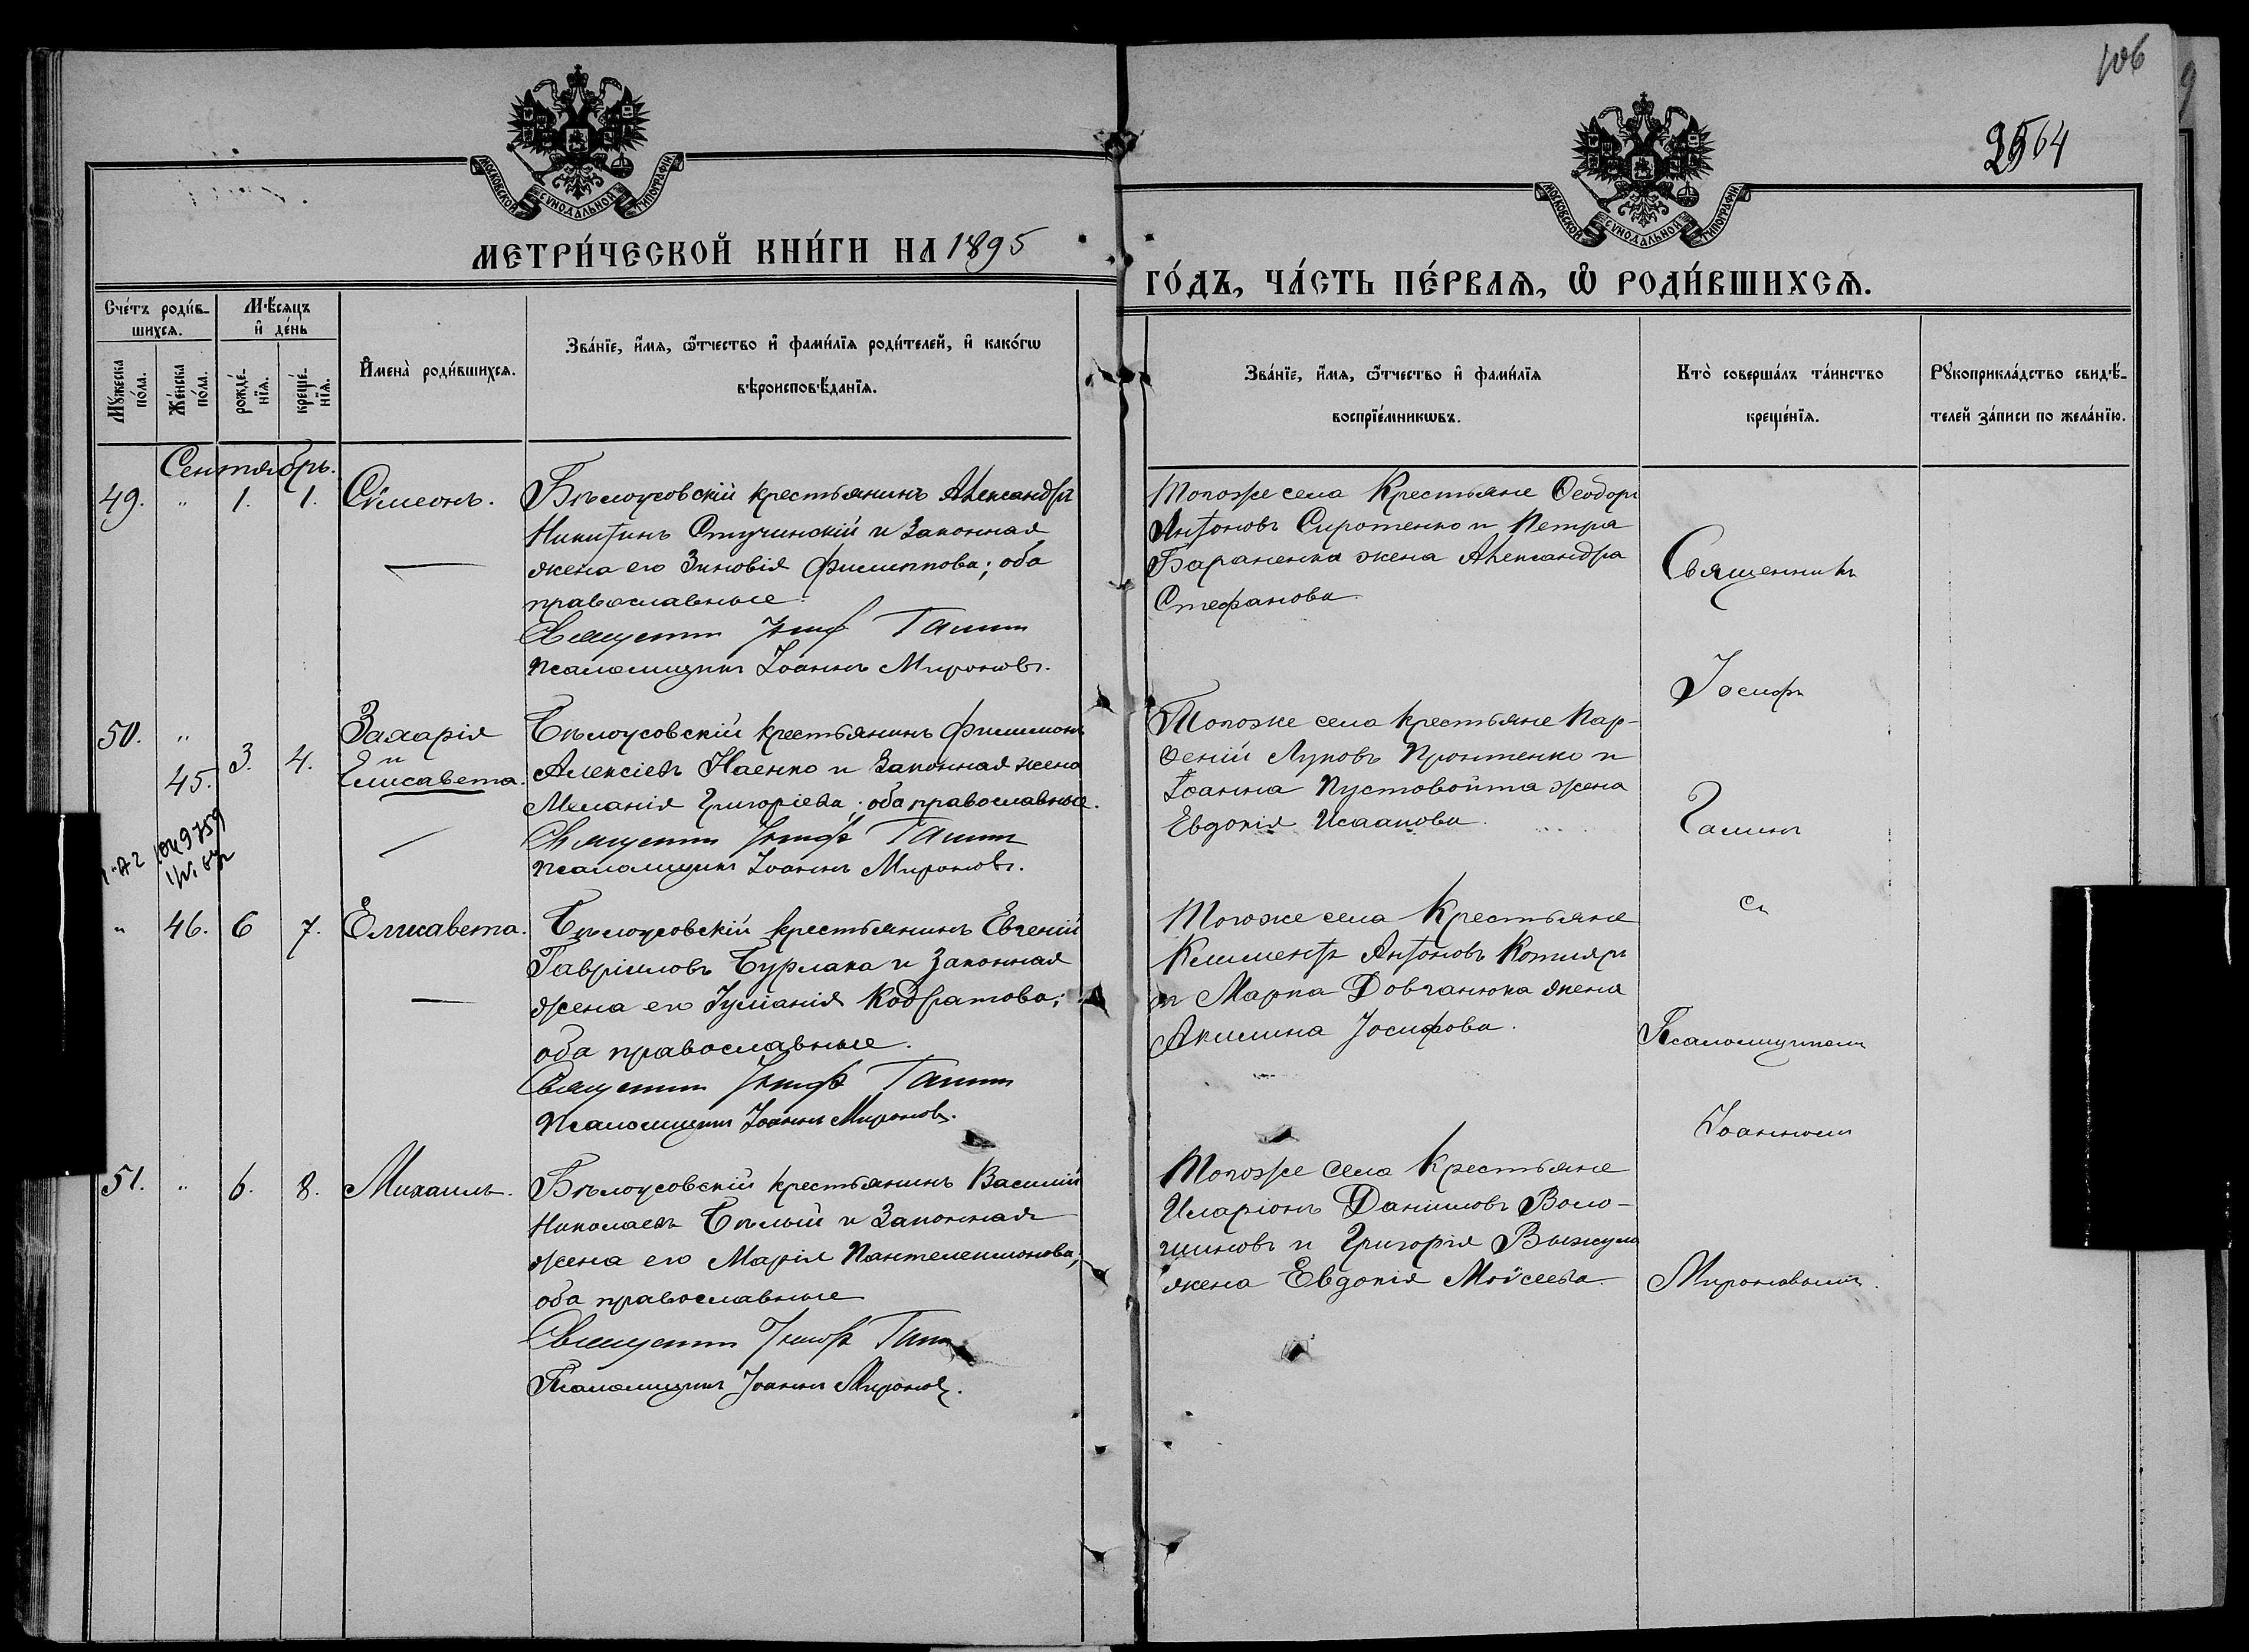 106
2564
МОСКОВСКОЙ СѴНОДАЛЬНОЙ ТИПОГРАФІИ
МОСКОВСКОЙ СѴНОДАЛЬНОЙ ТИПОГРАФІИ
МЕТРИ́ЧЕСКОЙ КНИ́ГИ НА 1895
ГО́ДЪ, ЧА́СТЬ ПЕ́РВАѦ, Ѽ РОДИ́ВШИХСѦ.
Сче́тъ роди́в-
шихсѧ.
Мѣ́сѧцъ
и҆ де́нь
Мꙋ́жеска
по́ла.
Же́нска
по́ла.
рожде́-
нїѧ.
креще́-
нїѧ.
И҆мена̀ роди́вшихсѧ.
Зва́нїе, и҆́мѧ, ѻ҆́тчество и҆ фами́лїѧ роди́телей, и҆ како́гѡ
вѣроисповѣ́данїѧ.
Зва́нїе, и҆́мѧ, ѻ҆́тчество и҆ фами́лїѧ
воспрїе́мникѡвъ.
Кто̀ соверша́лъ та́инство
креще́нїѧ.
Рꙋкоприкла́дство свидѣ́-
телей за́писи по жела́нїю.
Сентябрь.
49. " 1. 1. Сѵмеонъ.
Бѣлоусовскій крестьянинъ Александръ
Никитинъ Стучинскій и законная
жена его Зиновія Филиппова; оба
православные.
Священникъ Іосифъ Галинъ
Псаломщикъ Іоаннъ Мироновъ.
Тогоже села Крестьяне Ѳеодоръ
Антоновъ Сиротенко и Петра
Бараненка жена Александра
Стефанова.
50. " 45. 3. 4. Захарія
и
Елисавета.
Бѣлоусовскій крестьянинъ Филимонъ
Алексіевъ Наенко и законная жена
Меланія Григоріева; оба православные.
Священникъ Іосифъ Галинъ
Псаломщикъ Іоаннъ Мироновъ.
Тогоже села крестьяне Пар-
ѳеній Луковъ Пронтенко и
Іоанна Пустовойта жена
Евдокія Исаакова.
" 46. 6 7. Елисавета.
Бѣлоусовскій крестьянинъ Евгеній
Гавріиловъ Бурлака и законная
жена его Іуліанія Кодратова;
оба православные.
Священникъ Іосифъ Галинъ
Псаломщикъ Іоаннъ Мироновъ.
Тогоже села Крестьяне
Климентъ Антоновъ Котляръ
и Марка Довганюка жена
Акилина Іосифова.
51. " 6. 8. Михаилъ.
Бѣлоусовскій крестьянинъ Василій
Николаевъ Бѣлый и законная
жена его Марія Пантелеимонова;
оба православные
Священникъ Іосифъ Галинъ
Псаломщикъ Іоаннъ Мироновъ.
Тогоже села Крестьяне
Иларіонъ Даниловъ Воло-
шиновъ и Григорія Выжула
жена Евдокія Моѵсеева.
Священникъ
Іосифъ
Галинъ
съ
Псаломщикомъ
Іоанномъ
Мироновымъ.